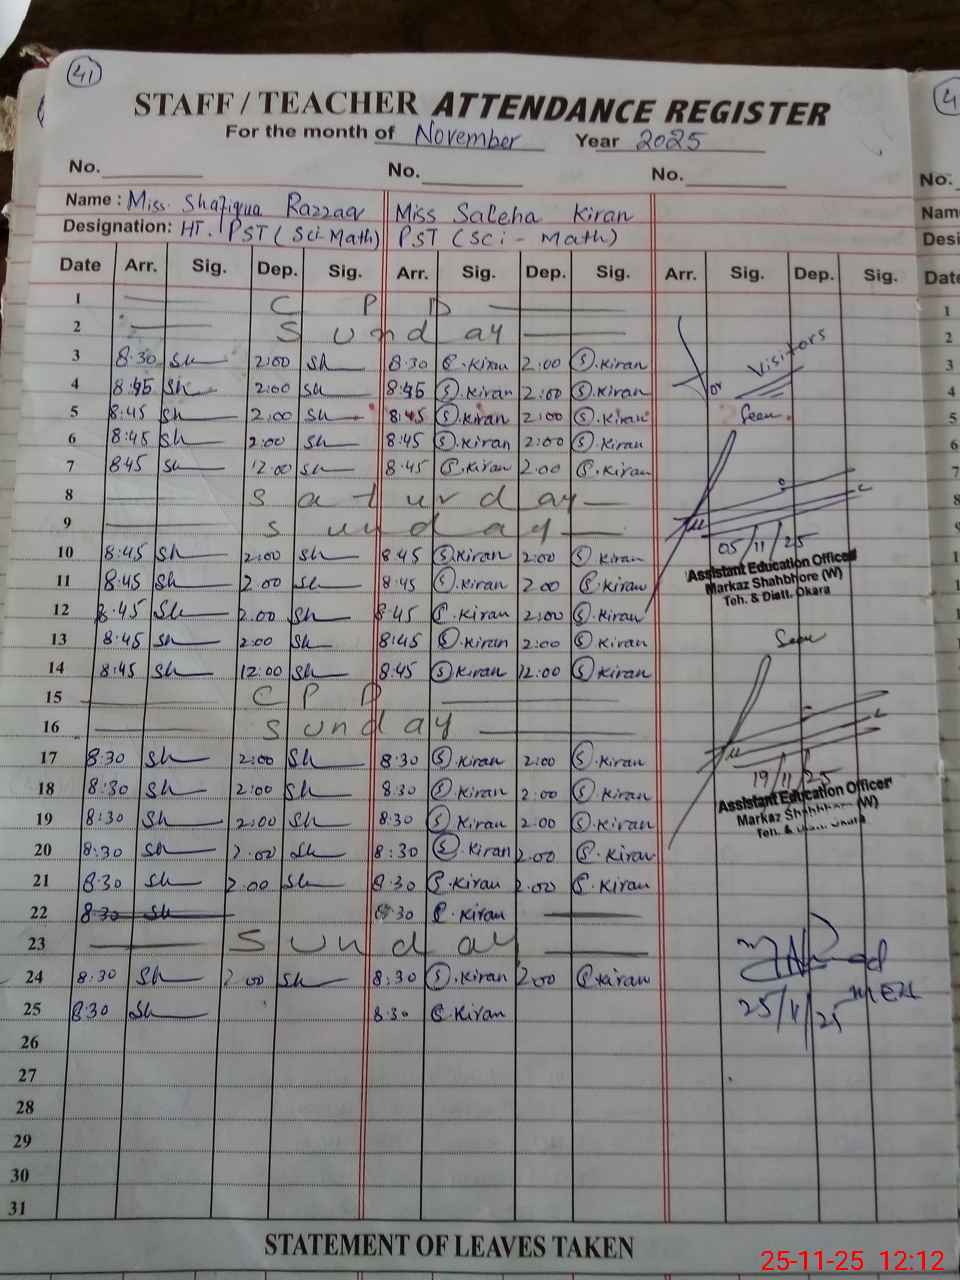 41
STAFF / TEACHER ATTENDANCE REGISTER
For the month of November Year 2025
No. No. No. No.
Name : Miss. Shafiqua Razzaq Miss Saleha Kiran
Designation: HT. PST (Sci-Math) PST (Sci - Math)
Date Arr. Sig. Dep. Sig. Arr. Sig. Dep. Sig. Arr. Sig. Dep. Sig. Date
1 C P D 1
2 Sunday 2
3 8:30 Sh 2:00 Sh 8:30 S.Kiran 2:00 S.Kiran 3
4 8:45 Sh 2:00 Sh 8:45 S.Kiran 2:00 S.Kiran 4
5 8:45 Sh 2:00 Sh 8:45 S.Kiran 2:00 S.Kiran 5
6 8:45 Sh 2:00 Sh 8:45 S.Kiran 2:00 S.Kiran 6
7 845 Sh 12:00 Sh 8:45 S.Kiran 2.00 S.Kiran 7
8 Saturday 8
9 Sunday 9
10 8:45 Sh 2:00 Sh 8:45 S.Kiran 2:00 S.Kiran
11 8:45 Sh 2:00 Sh 8:45 S.Kiran 2:00 S.Kiran
12 8:45 Sh 2:00 Sh 8:45 S.Kiran 2:00 S.Kiran
13 8:45 Sh 2:00 Sh 8:45 S.Kiran 2:00 S.Kiran
14 8:45 Sh 12:00 Sh 8:45 S.Kiran 12:00 S.Kiran
15 C P D
16 Sunday
17 8:30 Sh 2:00 Sh 8:30 S.Kiran 2:00 S.Kiran
18 8:30 Sh 2:00 Sh 8:30 S.Kiran 2:00 S.Kiran
19 8:30 Sh 2:00 Sh 8:30 S.Kiran 2:00 S.Kiran
20 8:30 Sh 2:00 Sh 8:30 S.Kiran 2:00 S.Kiran
21 8:30 Sh 2:00 Sh 8:30 S.Kiran 2:00 S.Kiran
22 8:30 Sh 8:30 S.Kiran
23 Sunday
24 8:30 Sh 2:00 Sh 8:30 S.Kiran 2:00 S.Kiran
25 8:30 Sh 8:30 S.Kiran
26
27
28
29
30
31
For Visitors
Seen
05/11/25
Assistant Education Officer
Markaz Shahbhore (W)
Teh. & Distt. Okara
Seen
19/11/25
Assistant Education Officer
Markaz (W)
Teh. & Okara
25/11/25
STATEMENT OF LEAVES TAKEN
25-11-25 12:12